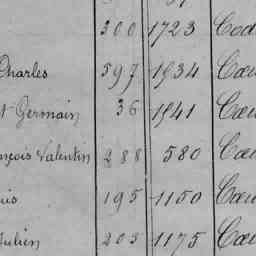 300 1723 Cod
Charles 597 1934 Cœu
t Germain 36 1941 Cœu
nçois Valentin 288 580 Cœu
uis 195 1150 Cœu
Julien 203 1175 Cœu